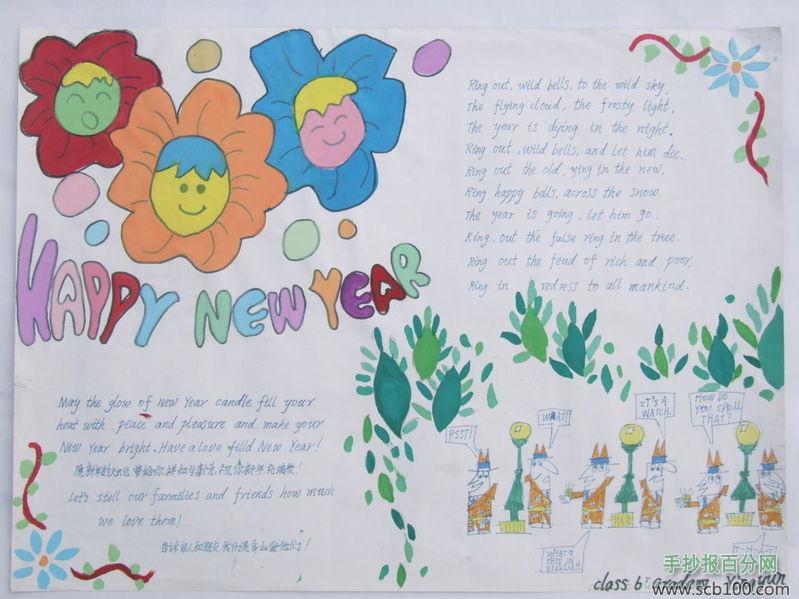 HAPPY NEW YEAR
Ring out, wild bells, to the wild sky.
The flying cloud, the frosty light.
The year is dying in the night.
Ring out, wild bells, and let him die..
Ring out the old, ying in the new.
Ring happy bells, across the snow.
The year is going. let him go.
Ring. out the false ring in the true.
Ring out the feud of rich and poor.
Ring in redress to all mankind.
May the glow of New Year candle fill your
heat with peace and pleasure and make your
New Year bright. Have a love filld New Year!
祝你新年充满爱!
Let's stell our farmilies and friends how much
we love them!
告诉家人和朋友我们是多么爱他们!
PSST!
WHAT?
WHAT'S
THIS IN
ENGLISH
IT'S A
WATCH.
HOW DO
YOU SPELL
THAT?
T-H-A-T
class 6
手抄报百分网
www.scb100.com